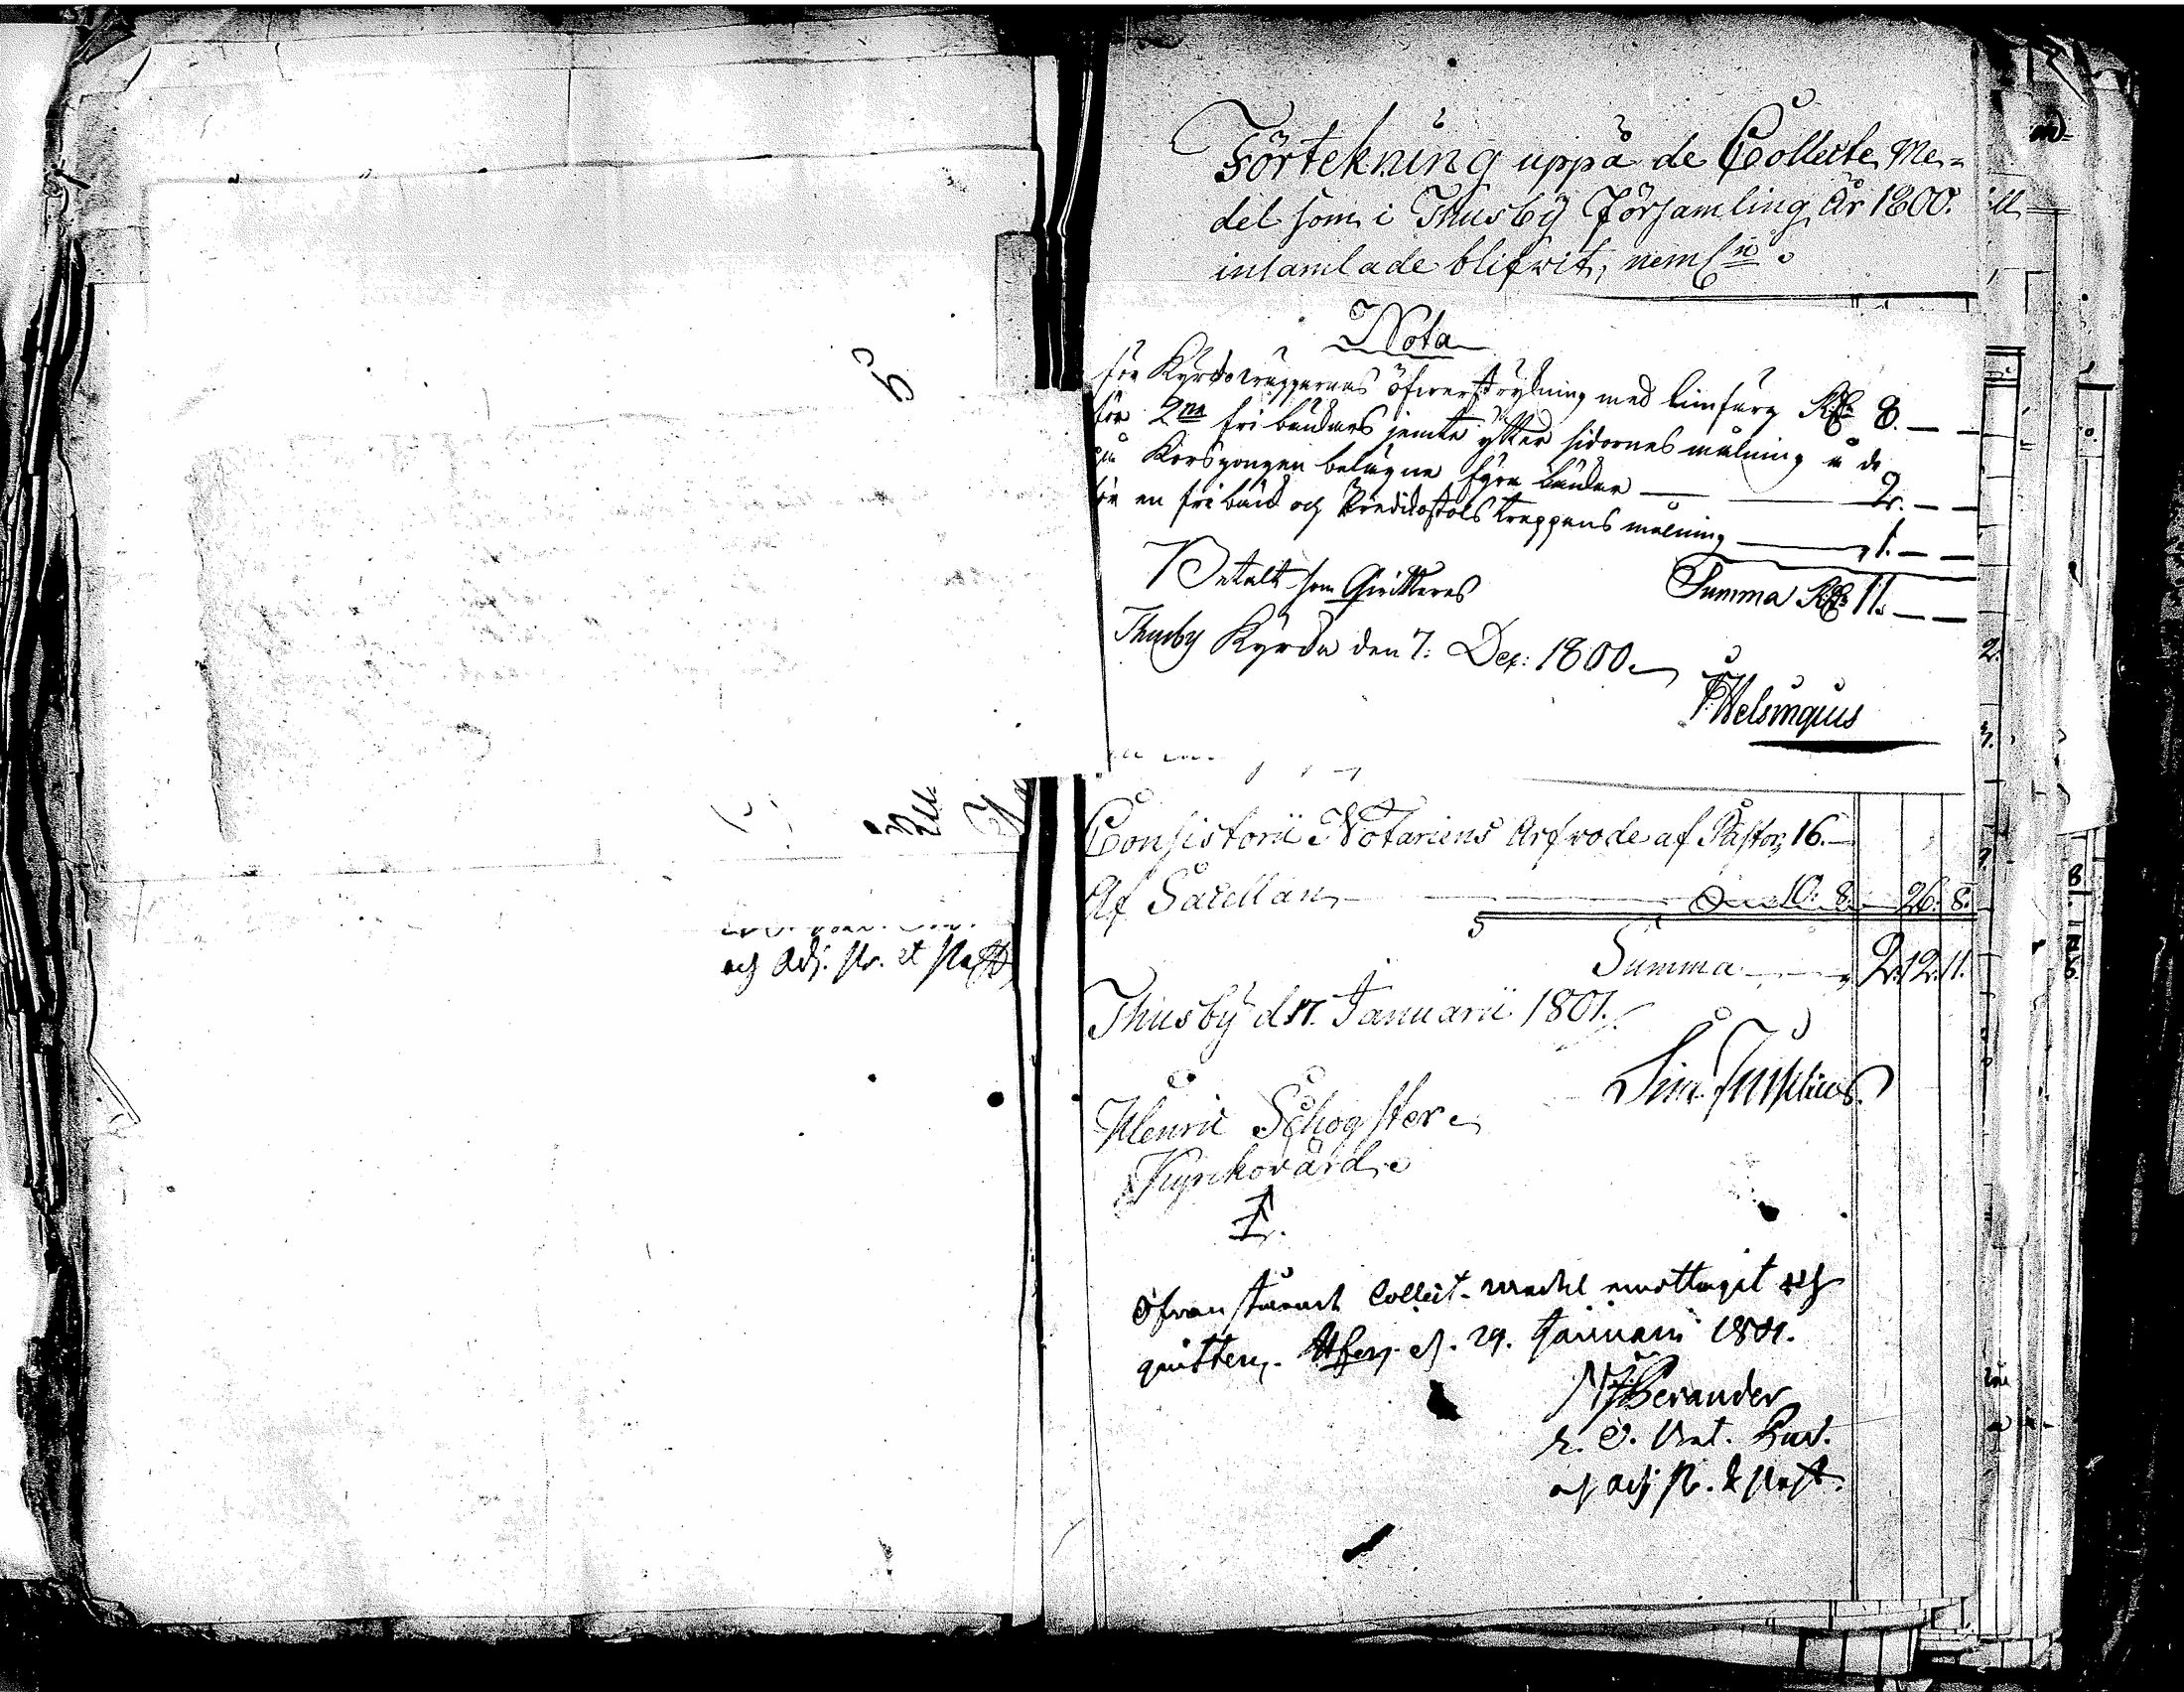 och Adj. Pr. et Past
Förtekning uppå de Collecte Me-
del som i Thusby Församling År 1800.
insamlade blifwit, neml:n
Nota
för Kyrkotrapparnas öfwerstrykning med limfärg RD 8. — —
för 2ne fri bänkars jemte ytter sidornes målning å de
på Korsgången belägne fyra bänkar — — 2. — —
för en fri bänk och Predikostols trappans målning — 1. — —
Summa RD 11. — —
Betalt som Qvitteras
Thusby Kyrka den 7: Dec: 1800.
Helsingius
Consistorii Notariens Arfwode af Pastor, 16. —
Af Sacellan, — 10. 8. 26. 8.
Summa — 2. 12. 11.
Thusby d. 17. Januarii 1801.
Henric Schogster
Kyrckovärd
Ofvanstående Collect-medel emottagit och
quitterar. d. 29. Januarii 1801.
och Adj. Pr. & Past.